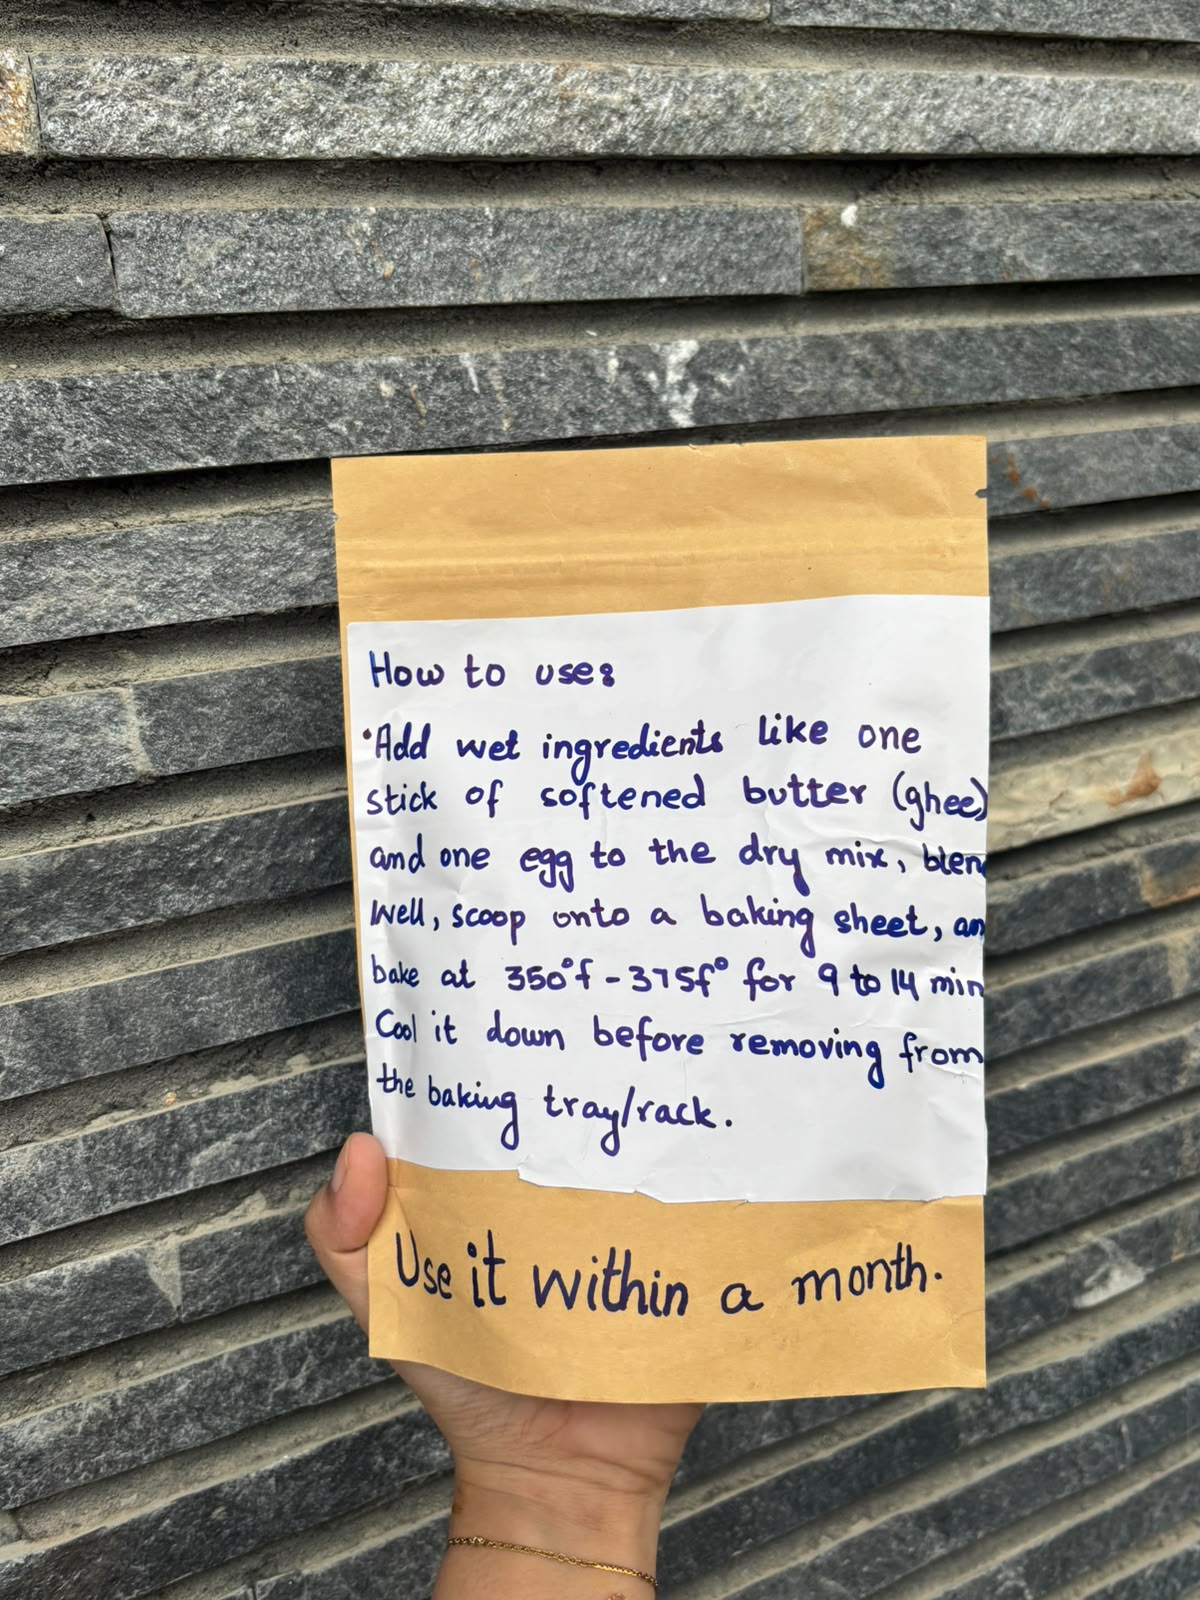 How to use:
•Add wet ingredients like one
stick of softened butter (ghee)
and one egg to the dry mix, blen
well, scoop onto a baking sheet, an
bake at 350°f - 375f° for 9 to 14 min
Cool it down before removing from
the baking tray/rack.
Use it within a month.